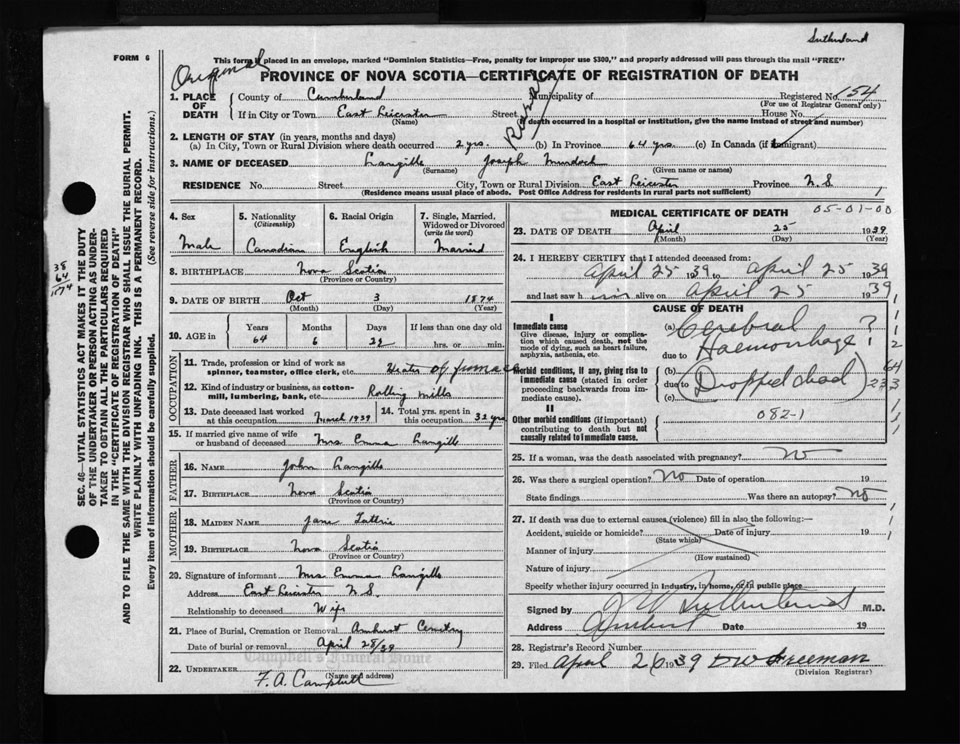 Sutherland
FORM 6
This form if placed in an envelope, marked "Dominion Statistics—Free, penalty for improper use $300," and properly addressed will pass through the mail "FREE"
Original
PROVINCE OF NOVA SCOTIA—CERTIFICATE OF REGISTRATION OF DEATH
1. PLACE OF DEATH
County of Cumberland Municipality of Registered No. 154
(For use of Registrar General only)
If in City or Town East Leicester Street Rural House No.
(Name) (If death occurred in a hospital or institution, give the name instead of street and number)
2. LENGTH OF STAY (in years, months and days)
(a) In City, Town or Rural Division where death occurred 2 yrs. (b) In Province 64 yrs. (c) In Canada (if immigrant)
3. NAME OF DECEASED Langille Joseph Murdoch
(Surname) (Given name or names)
RESIDENCE No. Street City, Town or Rural Division East Leicester Province N.S.
(Residence means usual place of abode. Post Office Address for residents in rural parts not sufficient)
4. Sex Male
5. Nationality (Citizenship) Canadian
6. Racial Origin English
7. Single, Married, Widowed or Divorced (write the word) Married
8. BIRTHPLACE Nova Scotia
(Province or Country)
9. DATE OF BIRTH Oct 3 1874
(Month) (Day) (Year)
10. AGE in Years Months Days If less than one day old
64 6 22 hrs. or min.
OCCUPATION
11. Trade, profession or kind of work as spinner, teamster, office clerk, etc. Heater of furnace
12. Kind of industry or business, as cotton-mill, lumbering, bank, etc. Rolling mills
13. Date deceased last worked at this occupation March 1939
14. Total yrs. spent in this occupation 32 yrs
15. If married give name of wife or husband of deceased Mrs. Emma Langille
FATHER
16. NAME John Langille
17. BIRTHPLACE Nova Scotia
(Province or Country)
MOTHER
18. MAIDEN NAME Jane Tattrie
19. BIRTHPLACE Nova Scotia
(Province or Country)
20. Signature of informant Mrs Emma Langille
Address East Leicester N.S.
Relationship to deceased Wife
21. Place of Burial, Cremation or Removal Amherst Cemetery
Date of burial or removal April 28/39
Campbell's Funeral Home
22. UNDERTAKER F. A. Campbell
(Name and address)
MEDICAL CERTIFICATE OF DEATH 05-01-00
23. DATE OF DEATH April 25 1939
(Month) (Day) (Year)
24. I HEREBY CERTIFY that I attended deceased from:
April 25 1939 to April 25 1939
and last saw him alive on April 25 1939
CAUSE OF DEATH
I
Immediate cause
Give disease, injury or complication which caused death, not the mode of dying, such as heart failure, asphyxia, asthenia, etc.
(a) Cerebral
due to Haemorrhage?
Morbid conditions, if any, giving rise to immediate cause (stated in order proceeding backwards from immediate cause).
(b)
due to (Dropped dead)
(c)
II
Other morbid conditions (if important) contributing to death but not causally related to immediate cause.
082-1
25. If a woman, was the death associated with pregnancy? No
26. Was there a surgical operation? No Date of operation 19
State findings Was there an autopsy? No
27. If death was due to external causes (violence) fill in also the following:—
Accident, suicide or homicide? Date of injury 19
(State which)
Manner of injury
(How sustained)
Nature of injury
Specify whether injury occurred in industry, in home, or in public place
Signed by Sutherland M.D.
Address Amherst Date 19
28. Registrar's Record Number
29. Filed April 26 1939 DW Freeman
(Division Registrar)
SEC. 46—VITAL STATISTICS ACT MAKES IT THE DUTY
OF THE UNDERTAKER OR PERSON ACTING AS UNDER-
TAKER TO OBTAIN ALL THE PARTICULARS REQUIRED
IN THE "CERTIFICATE OF REGISTRATION OF DEATH"
AND TO FILE THE SAME WITH THE DIVISION REGISTRAR WHO SHALL ISSUE THE BURIAL PERMIT.
WRITE PLAINLY WITH UNFADING INK. THIS IS A PERMANENT RECORD.
Every item of information should be carefully supplied. (See reverse side for instructions.)
38
64
1874